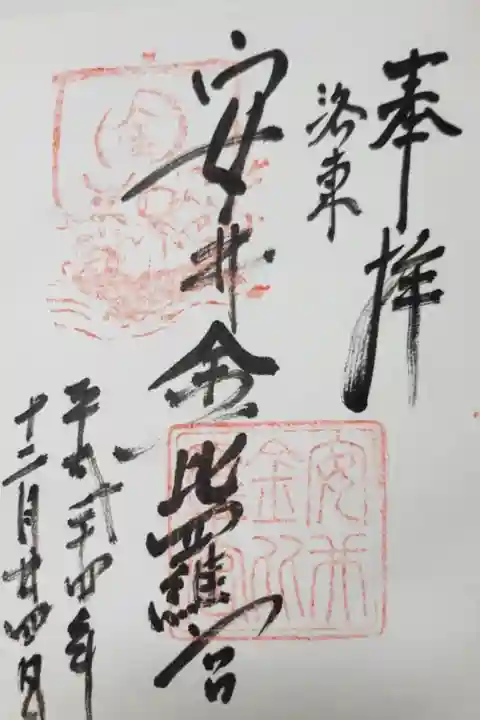 奉拝
洛東
安井金比羅宮
平成二十四年
十二月廿四日
安井
金比
羅宮